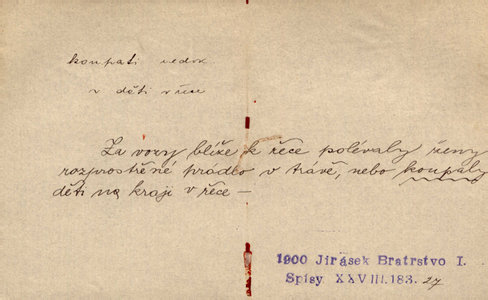 koupati nedok
v děti v řece
Za vozy blíže k řece polévaly ženy
rozprostřéné prádlo v trávě, nebo koupaly
děti na kraji v řece –
1900 Jirásek Bratrstvo I.
Spisy XXVIII.183. 27